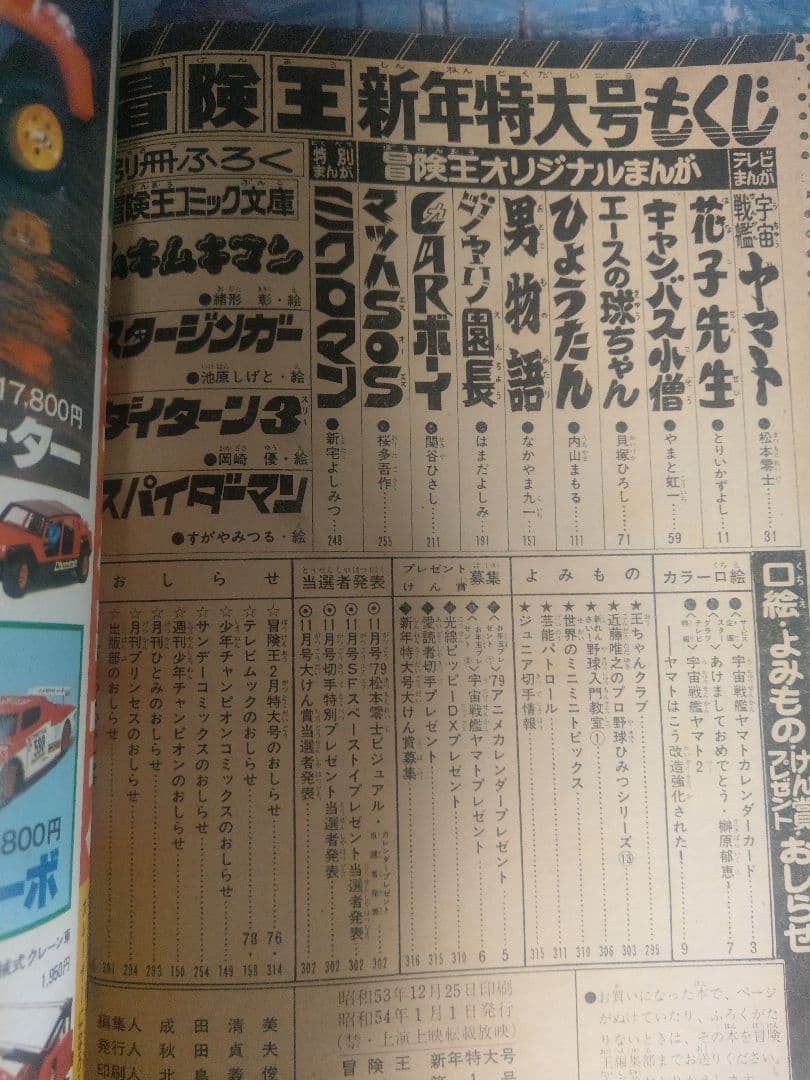 冒険王 新年特大号もくじ
テレビまんが
宇宙戦艦ヤマト ●松本零士 31
冒険王オリジナルまんが
花子先生 ●とりいかずよし 11
キャンバス小僧 ●やまと虹一 59
エースの球ちゃん ●貝塚ひろし 71
ひょうたん ●内山まもる 111
男物語 ●なかやま九一 151
ジャリ園長 ●はまだよしみ 191
CARボーイ ●関谷ひさし 211
マッハSOS ●桜多吾作 255
特別まんが
ミクロマン ●新宅よしみつ 248
別冊ふろく
冒険王コミック文庫
ムキムキマン
●緒形 彰・絵
スタージンガー
●池原しげと・絵
ダイターン3
●岡崎 優・絵
スパイダーマン
●すがやみつる・絵
口絵・よみもの・けん賞・プレゼント・おしらせ
カラー口絵
宇宙戦艦ヤマトカレンダーカード 3
あけましておめでとう・榊原郁恵 7
宇宙戦艦ヤマト2
ヤマトはこう改造強化された! 9
よみもの
★王ちゃんクラブ 295
★近藤唯之のプロ野球ひみつシリーズ⑬ 303
野球入門教室① 306
★世界のミニミニトピックス 310
★芸能パトロール 311
★ジュニア切手情報 315
プレゼントけん賞募集
'79アニメカレンダープレゼント 5
宇宙戦艦ヤマトプレゼント 6
光線ピッピーDXプレゼント 310
愛読者切手プレゼント 315
新年特大号大けん賞募集 316
当選者発表
◎11月号'79松本零士ビジュアル・カレンダープレゼント当選者発表 302
◎11月号SFスペーストイプレゼント当選者発表 302
◎11月号切手特別プレゼント当選者発表 302
◎11月号大けん賞当選者発表 302
おしらせ
☆冒険王2月特大号のおしらせ 76・314
☆テレビムックのおしらせ 78・158
☆少年チャンピオンコミックスのおしらせ 149
☆サンデーコミックスのおしらせ 254
☆週刊少年チャンピオンのおしらせ 150
☆月刊ひとみのおしらせ 293
☆月刊プリンセスのおしらせ 294
☆出版部のおしらせ
●お買いになった本で、ページ
がぬけていたり、ふろくがた
りないときは、その本を冒険
王編集部までお送りください。
昭和53年12月25日印刷
昭和54年1月1日発行
(禁・上演上映転載放映)
冒険王 新年特大号
編集人 成田清美
発行人 秋田貞夫
印刷人 北島義俊
17,800円
ーター
800円
ーボ
械式クレーン車
1,950円